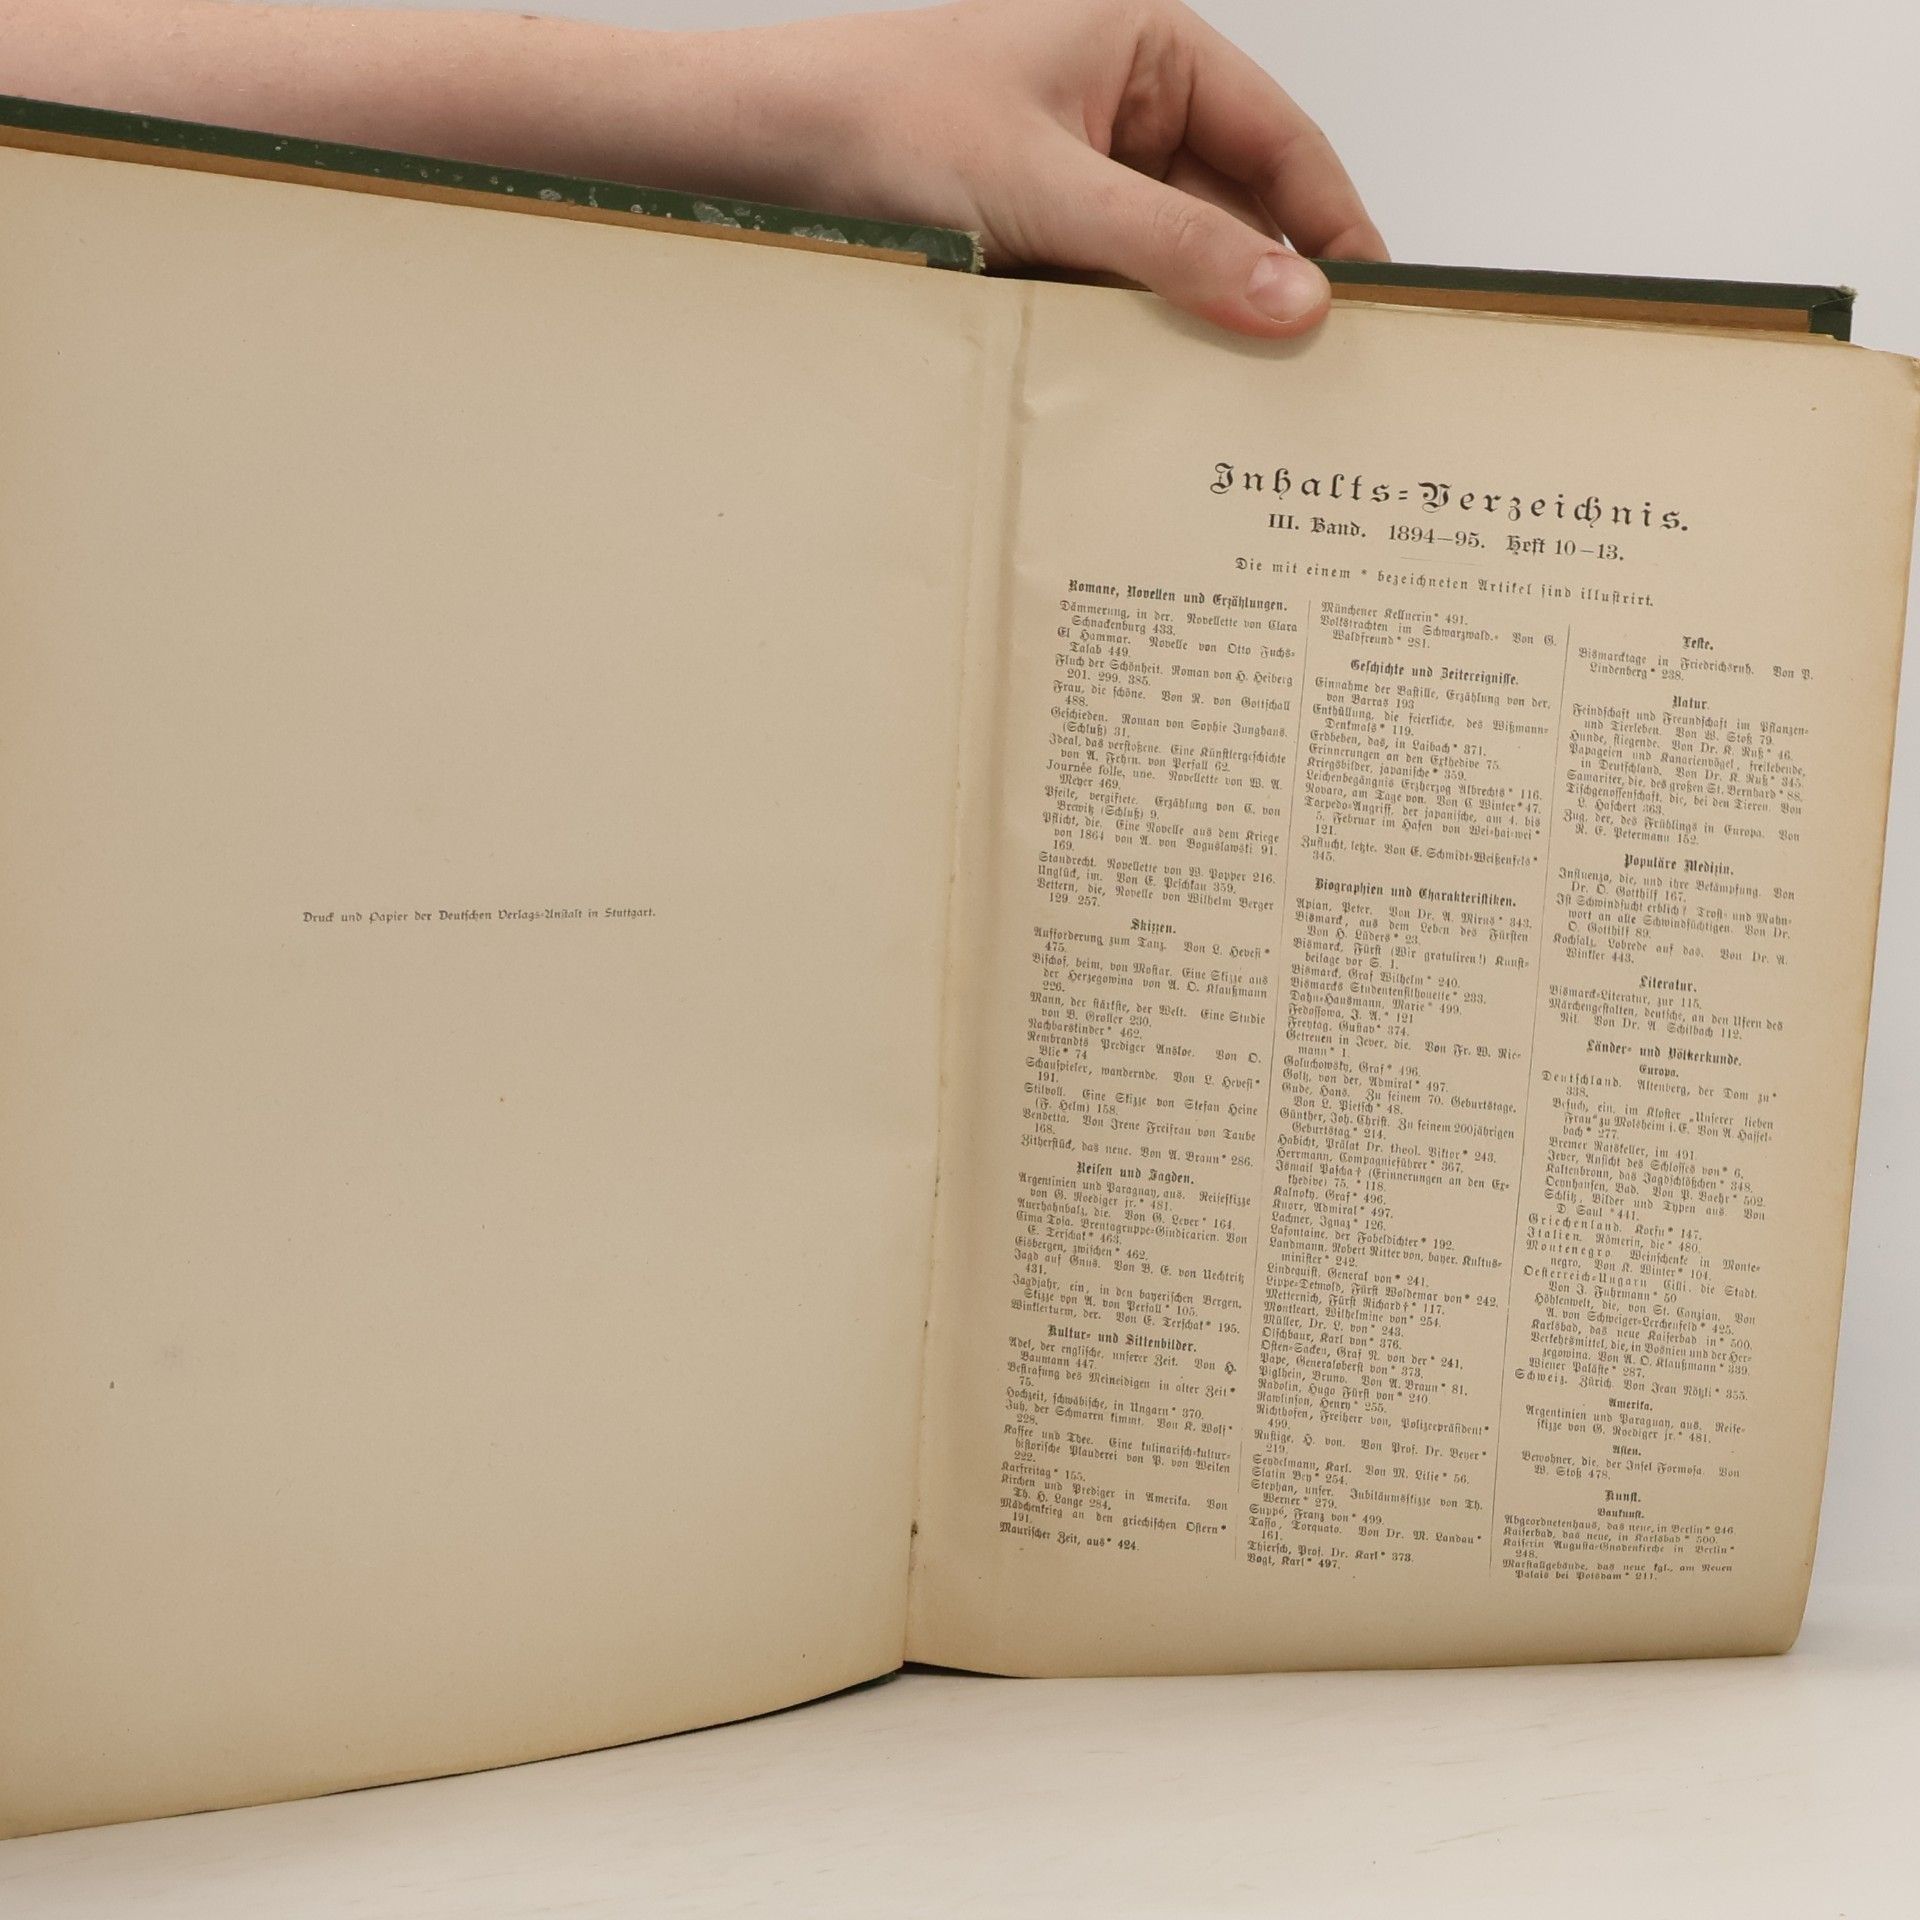 Druck und Papier der Deutschen Verlags-Anstalt in Stuttgart.
Inhalts-Verzeichnis.
III. Band. 1894–95. Heft 10–13.
Die mit einem * bezeichneten Artikel sind illustrirt.
Romane, Novellen und Erzählungen.
Dämmerung, in der. Novellette von Clara
Schnackenburg 433.
El Hammar. Novelle von Otto Fuchs-
Talab 449.
Fluch der Schönheit. Roman von H. Heiberg
201. 299. 385.
Frau, die schöne. Von R. von Gottschall
488.
Geschieden. Roman von Sophie Junghans.
(Schluß) 31.
Ideal, das verstoßene. Eine Künstlergeschichte
von A. Frhrn. von Perfall 62.
Journée folle, une. Novellette von W. A.
Meyer 469.
Pfeile, vergiftete. Erzählung von C. von
Brewitz (Schluß) 9.
Pflicht, die. Eine Novelle aus dem Kriege
von 1864 von A. von Boguslawski 91.
169.
Standrecht. Novellette von W. Popper 216.
Unglück, im. Von E. Peschkau 359.
Vettern, die, Novelle von Wilhelm Berger
129 257.
Skizzen.
Aufforderung zum Tanz. Von L. Hevesi*
475.
Bischof, beim, von Mostar. Eine Skizze aus
der Herzegowina von A. O. Klaußmann
226.
Mann, der stärkste, der Welt. Eine Studie
von B. Groller 230.
Nachbarskinder* 462.
Rembrandts Prediger Ansloe. Von O.
Blie* 74
Schauspieler, wandernde. Von L. Hevesi*
191.
Stilvoll. Eine Skizze von Stefan Heine
(F. Helm) 158.
Vendetta. Von Irene Freifrau von Taube
168.
Zitherstück, das neue. Von A. Braun* 286.
Reisen und Jagden.
Argentinien und Paraguay, aus. Reiseskizze
von G. Roediger jr.* 481.
Auerhahnbalz, die. Von G. Lever* 164.
Cima Tosa. Brentagruppe-Giudicarien. Von
E. Terschak* 463.
Eisbergen, zwischen* 462.
Jagd auf Gnus. Von B. E. von Uechtritz
431.
Jagdjahr, ein, in den bayerischen Bergen.
Skizze von A. von Perfall* 105.
Winklerturm, der. Von E. Terschak* 195.
Kultur- und Sittenbilder.
Adel, der englische, unserer Zeit. Von H.
Baumann 447.
Bestrafung des Meineidigen in alter Zeit*
75.
Hochzeit, schwäbische, in Ungarn* 370.
Juh, der Schmarrn kimmt. Von K. Wolf*
228.
Kaffee und Thee. Eine kulinarisch-kultur-
historische Plauderei von P. von Weilen
222.
Karfreitag* 155.
Kirchen und Prediger in Amerika. Von
Th. H. Lange 284.
Mädchenkrieg an den griechischen Ostern*
191.
Maurischer Zeit, aus* 424.
Münchener Kellnerin* 491.
Volkstrachten im Schwarzwald. Von G.
Waldfreund* 281.
Geschichte und Zeitereignisse.
Einnahme der Bastille, Erzählung von der,
von Barras 193
Enthüllung, die feierliche, des Wißmann-
Denkmals* 119.
Erdbeben, das, in Laibach* 371.
Erinnerungen an den Exkhedive 75.
Kriegsbilder, japanische* 359.
Leichenbegängnis Erzherzog Albrechts* 116.
Novara, am Tage von. Von C Winter* 47.
Torpedo-Angriff, der japanische, am 4. bis
5. Februar im Hafen von Wei-hai-wei*
121.
Zuflucht, letzte. Von E. Schmidt-Weißenfels*
345.
Biographien und Charakteristiken.
Apian, Peter. Von Dr. A. Mirus* 343.
Bismarck, aus dem Leben des Fürsten
Von H. Lüders* 23.
Bismarck, Fürst (Wir gratuliren!) Kunst-
beilage vor S. 1.
Bismarck, Graf Wilhelm* 240.
Bismarcks Studentensilhouette* 233.
Dahn-Hausmann, Marie* 499.
Fedossowa, J. A.* 121
Freytag, Gustav* 374.
Getreuen in Jever, die. Von Fr. W. Rie-
mann* 1.
Goluchowsky, Graf* 496.
Goltz, von der, Admiral* 497.
Gude, Hans. Zu seinem 70. Geburtstage.
Von L. Pietsch* 48.
Günther, Joh. Christ. Zu seinem 200jährigen
Geburtstag* 214.
Habicht, Prälat Dr. theol. Viktor* 243.
Herrmann, Compagnieführer* 367.
Ismail Pascha† (Erinnerungen an den Ex-
khedive) 75. *118.
Kalnoky, Graf* 496.
Knorr, Admiral* 497.
Lachner, Ignaz* 126.
Lafontaine, der Fabeldichter* 192.
Landmann, Robert Ritter von, bayer. Kultus-
minister* 242.
Lindequist, General von* 241.
Lippe-Detmold, Fürst Woldemar von* 242.
Metternich, Fürst Richard†* 117.
Montleart, Wilhelmine von* 254.
Müller, Dr. L. von* 243.
Olschbaur, Karl von* 376.
Osten-Sacken, Graf N. von der* 241.
Pape, Generaloberst von* 373.
Piglhein, Bruno. Von A. Braun* 81.
Radolin, Hugo Fürst von* 240
Rawlinson, Henry* 255.
Richthofen, Freiherr von, Polizeipräsident*
499.
Rustige, H. von. Von Prof. Dr. Beyer*
219.
Seydelmann, Karl. Von M. Lilie* 56.
Slatin Bey* 254.
Stephan, unser. Jubiläumsskizze von Th.
Werner* 279.
Suppé, Franz von* 499.
Tasso, Torquato. Von Dr. M. Landau*
161.
Thiersch, Prof. Dr. Karl* 373.
Vogt, Karl* 497.
Feste.
Bismarcktage in Friedrichsruh. Von P.
Lindenberg* 238.
Natur.
Feindschaft und Freundschaft im Pflanzen-
und Tierleben. Von W. Stoß 79.
Hunde, fliegende. Von Dr. K. Ruß* 46.
Papageien und Kanarienvögel, freilebende,
in Deutschland. Von Dr. K. Ruß* 345.
Samariter, die, des großen St. Bernhard* 88.
Tischgenossenschaft, die, bei den Tieren. Von
L. Haschert 363.
Zug, der, des Frühlings in Europa. Von
R. E. Petermann 152.
Populäre Medizin.
Influenza, die, und ihre Bekämpfung. Von
Dr. O. Gotthilf 167.
Ist Schwindsucht erblich? Trost- und Mahn-
wort an alle Schwindsüchtigen. Von Dr.
O. Gotthilf 89.
Kochsalz, Lobrede auf das. Von Dr. A.
Winkler 443.
Literatur.
Bismarck-Literatur, zur 115.
Märchengestalten, deutsche, an den Ufern des
Nil. Von Dr. A. Schilbach 112.
Länder- und Völkerkunde.
Europa.
Deutschland. Altenberg, der Dom zu*
338.
Besuch, ein, im Kloster „Unserer lieben
Frau“ zu Molsheim i. E. Von A. Hassel-
bach* 277.
Bremer Ratskeller, im 491.
Jever, Ansicht des Schlosses von* 6.
Kaltenbronn, das Jagdschlößchen* 348.
Oeynhausen, Bad. Von P. Baehr* 502
Schlitz, Bilder und Typen aus. Von
D. Saul* 441.
Griechenland. Korfu* 147.
Italien. Römerin, die* 480.
Montenegro. Weinschenke in Monte-
negro. Von K. Winter* 104.
Oesterreich-Ungarn Cilli, die Stadt.
Von J. Fuhrmann* 50
Höhlenwelt, die, von St. Canzian. Von
A. von Schweiger-Lerchenfeld* 425.
Karlsbad, das neue Kaiserbad in* 500.
Verkehrsmittel, die, in Bosnien und der Her-
zegowina. Von A. O. Klaußmann* 339.
Wiener Paläste* 287.
Schweiz. Zürich. Von Jean Nötzli* 355.
Amerika.
Argentinien und Paraguay, aus. Reise-
skizze von G. Roediger jr.* 481.
Asien.
Bewohner, die, der Insel Formosa. Von
W. Stoß 478.
Kunst.
Baukunst.
Abgeordnetenhaus, das neue, in Berlin* 246.
Kaiserbad, das neue, in Karlsbad* 500.
Kaiserin Augusta-Gnadenkirche in Berlin*
248.
Marstallgebäude, das neue kgl., am Neuen
Palais bei Potsdam* 211.